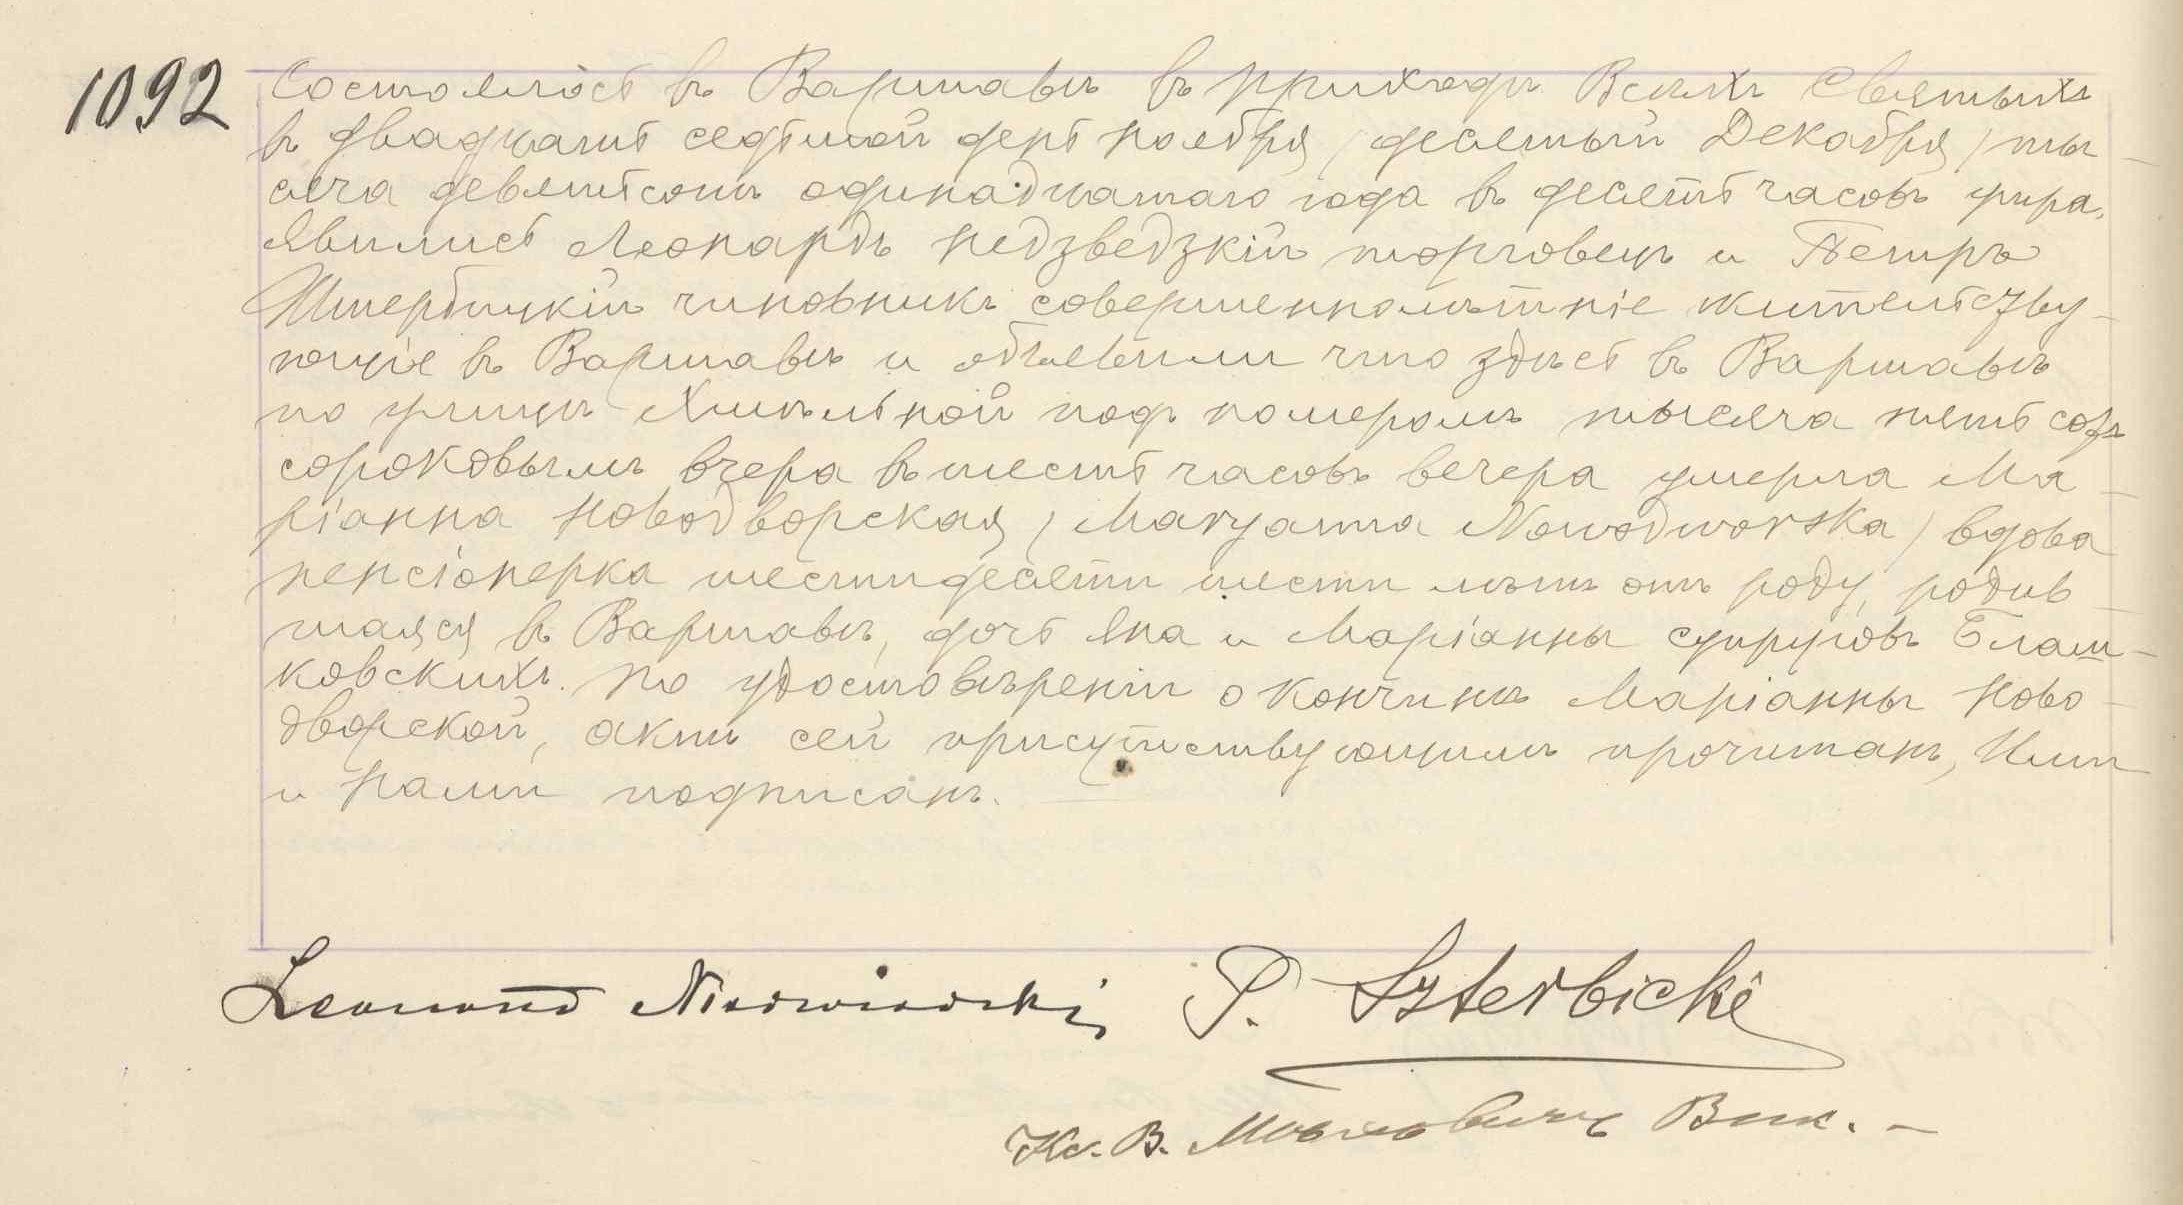 1092
Состоялось въ Варшавѣ въ приходѣ Всѣхъ Святыхъ
въ двадцать седьмой день ноября (десятый Декабря) ты-
сяча девятьсотъ одинадцатаго года въ десять часовъ утра.
Явились Леонардъ Недзведзкій торговецъ и Петръ
Штербицкій чиновникъ совершеннолѣтніе жительству-
ющіе въ Варшавѣ и объявили что здѣсь въ Варшавѣ
по улицѣ Хмѣльной подъ номеромъ тысяча пятьсотъ
сороковымъ вчера въ шесть часовъ вечера умерла Ма-
ріанна Новодворская (Maryanna Nowodworska) вдова
пенсіонерка шестидесяти шести лѣтъ отъ роду, родив-
шаяся въ Варшавѣ, дочь Яна и Маріанны супруговъ Блаш-
ковскихъ. По удостовѣреніи о кончинѣ Маріанны Ново-
дворской, актъ сей присутствующимъ прочитанъ, Ими
и Нами подписанъ.
Leonard Niedzwiedzki P. Szterbicki
Кс. В. Вик.